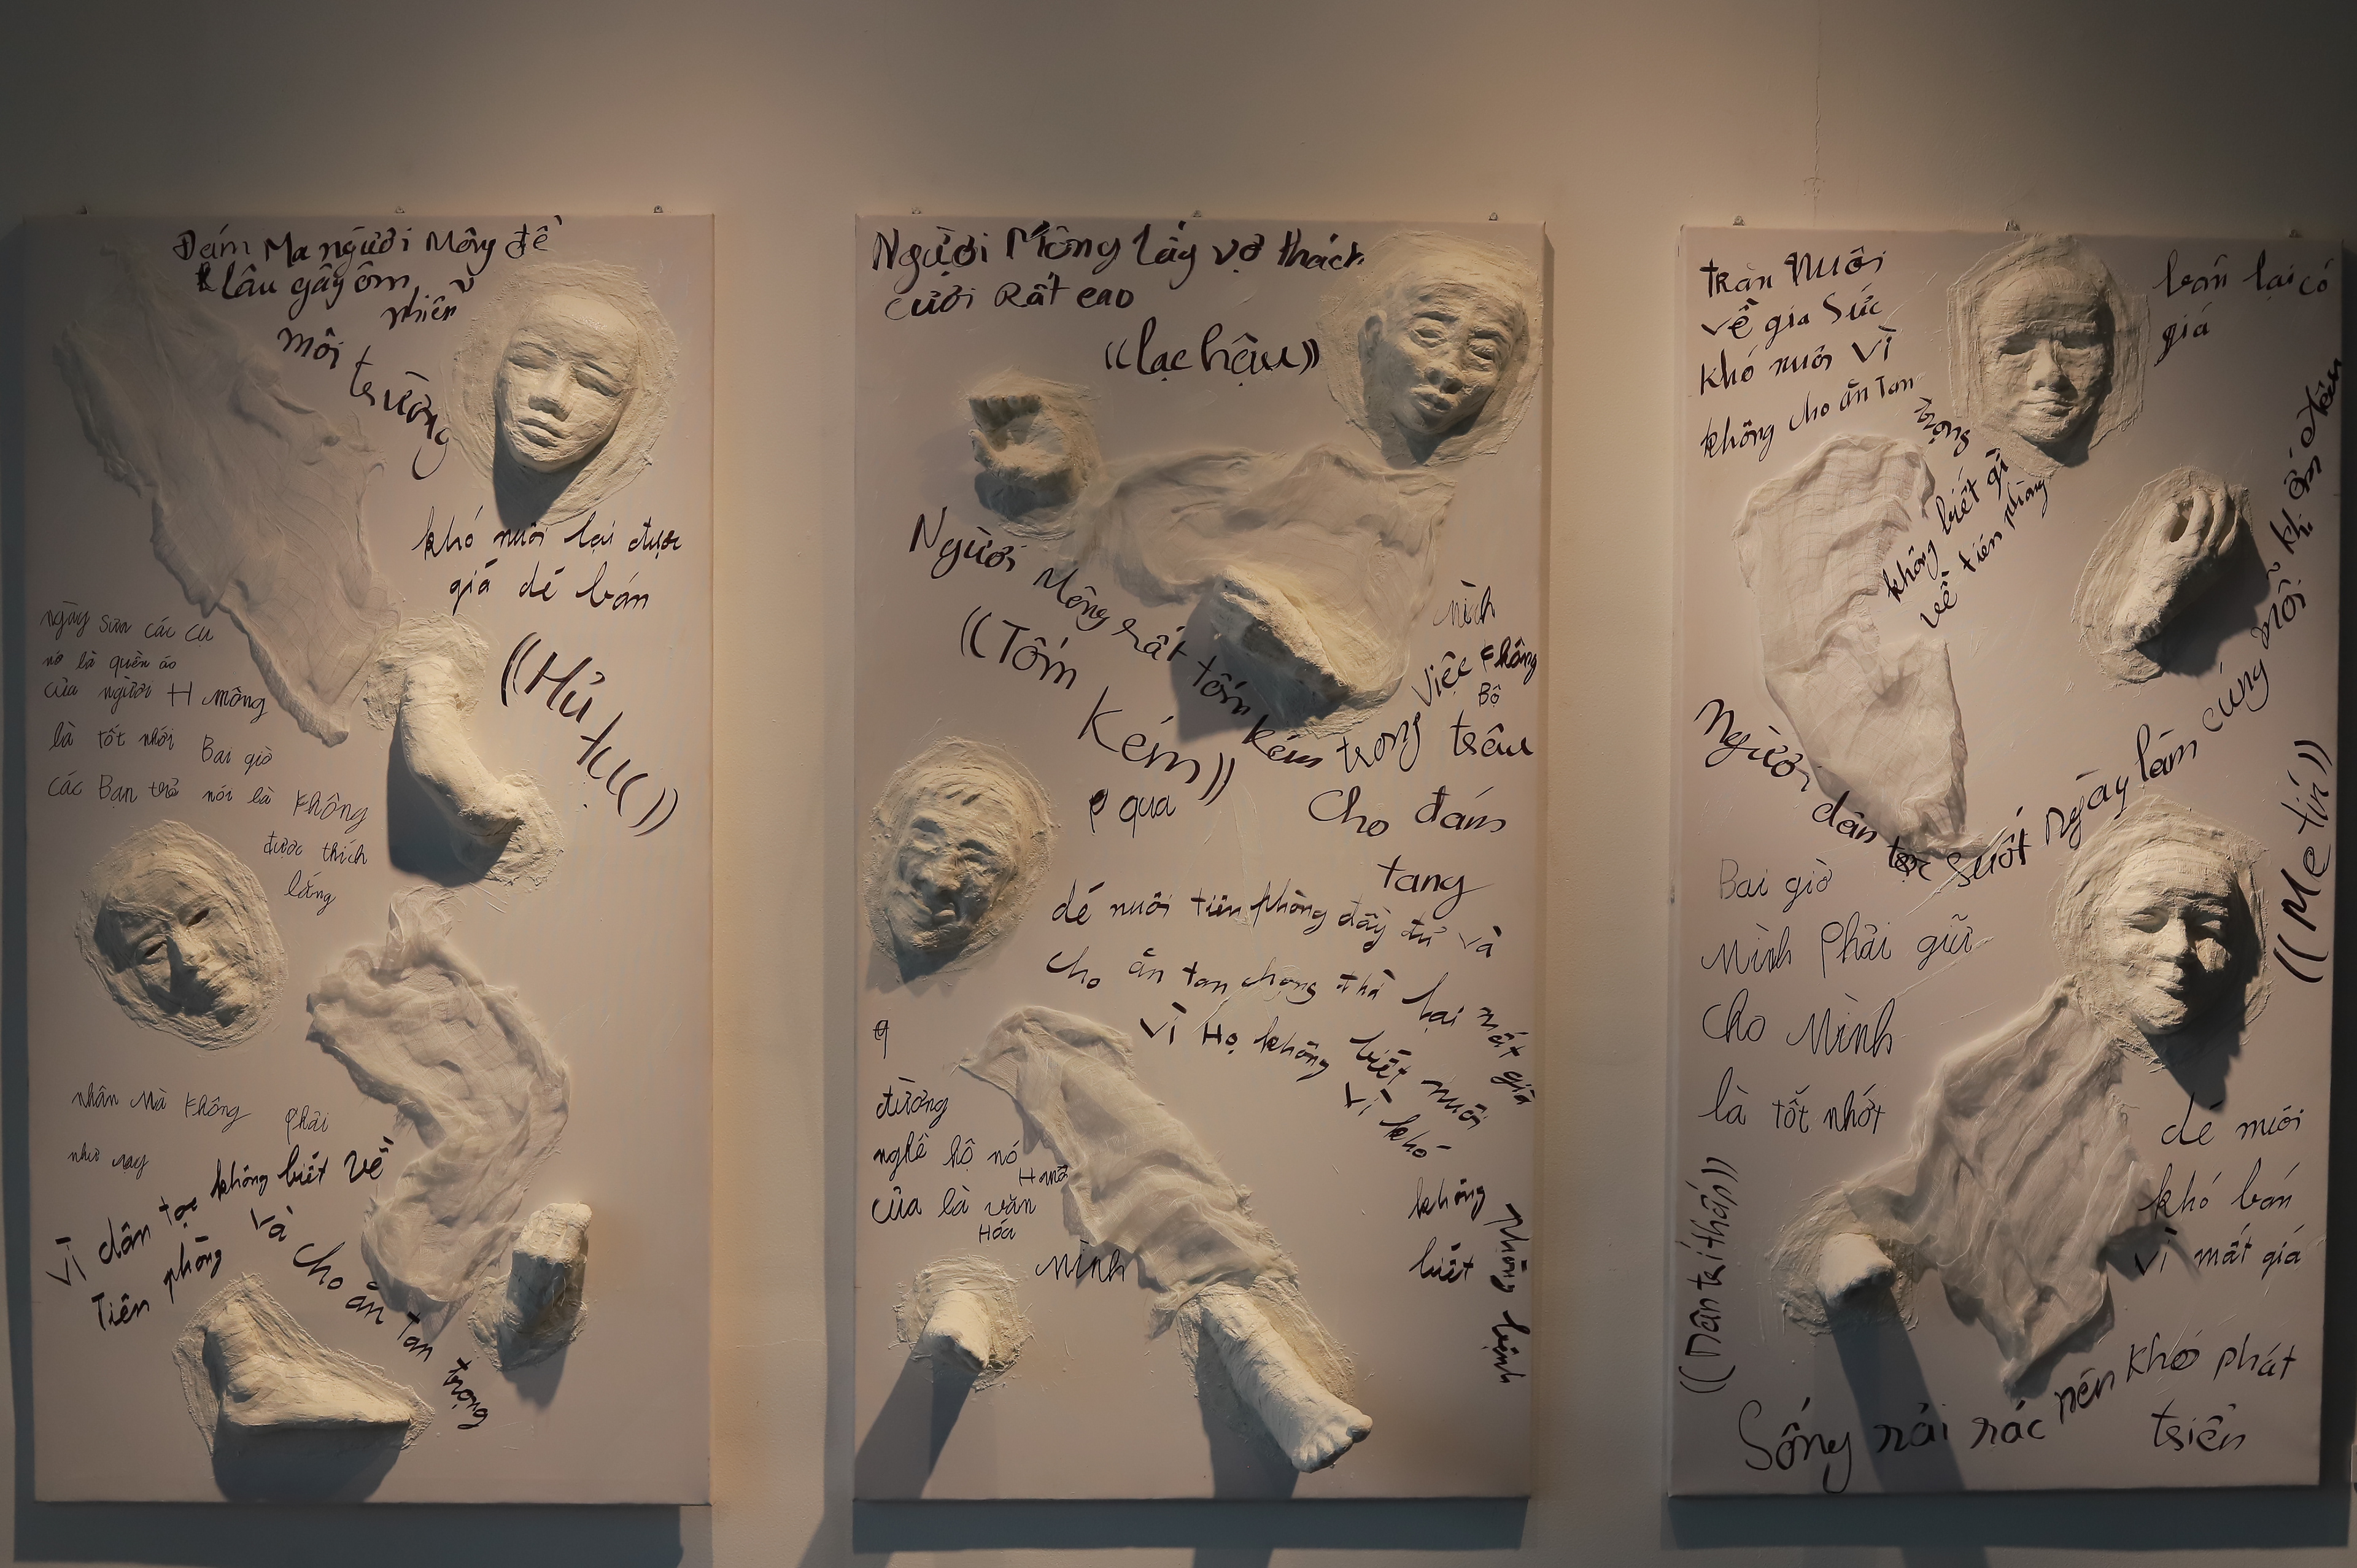 Đám Ma người Mông để
lâu gây ôm
nhiễ
môi
trường
khó nuôi lại được
giá dẻ bán
((Hủ tục))
ngày sưa các cụ
nó là quền áo
của người H mông
là tốt nhới Bai giờ
các Bạn trẻ nói là không
được thích
lắng
nhân Mà không phải
như vay
Vì dân tọc không biết về
Tiên phòng
và cho ăn Tan
trọng
Người Mông Lấy vợ thách
cưới Rất cao
((lạc hậu))
Người Mông rất tốm kém trong việc không
Bộ
((Tốm
Kém))
qua
trâu
cho đám
tang
dẻ nuôi tiên phòng đầy đủ và
cho ăn tan chọng thì lại mất giá
Vì Họ không biết nuôi
Vì khó
không
biết
phòng bịnh
đường
nghề hộ nó
của là văn
Hóa
mình
trăn Nuôi
về gia Súc
khó nuôi vì
không cho ăn Tan
trọng
không biết gì
về tiên phòng
bán lại có
giá
Người dân tọc suốt Ngày lám cúng mỗi khi ốm đau
((Me tín))
Bai giờ
Mình phải giữ
cho Mình
là tốt nhớt
((Dân trí thấp))
dẻ nuôi
khó bán
vì mất giá
Sống rải rác nên khó phát
triển